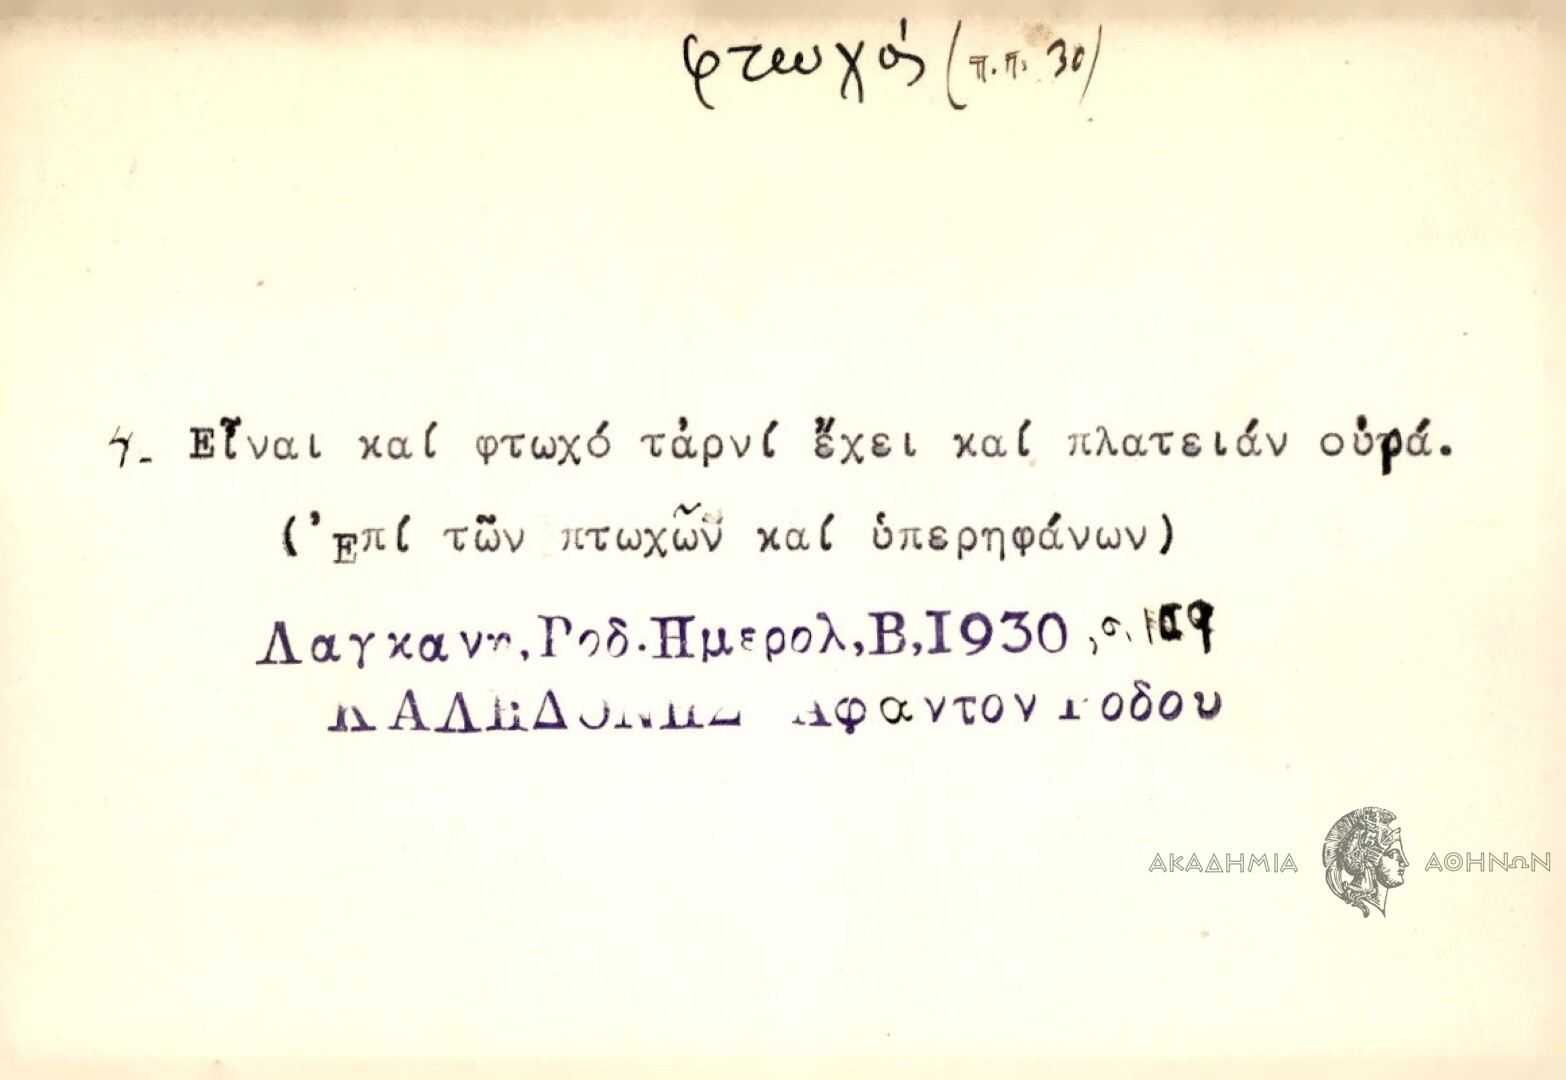 φτωχός (π.π. 30)
γ- Εἶναι καί φτωχό τἀρνί ἔχει καί πλατειάν οὐρά.
(Ἐπί τῶν πτωχῶν καί ὑπερηφάνων)
Λαγκανη, Ροδ. Ημερολ, Β, 1930, σ.
Αφαντον Ροδου
ΑΚΑΔΗΜΙΑ ΑΘΗΝΩΝ